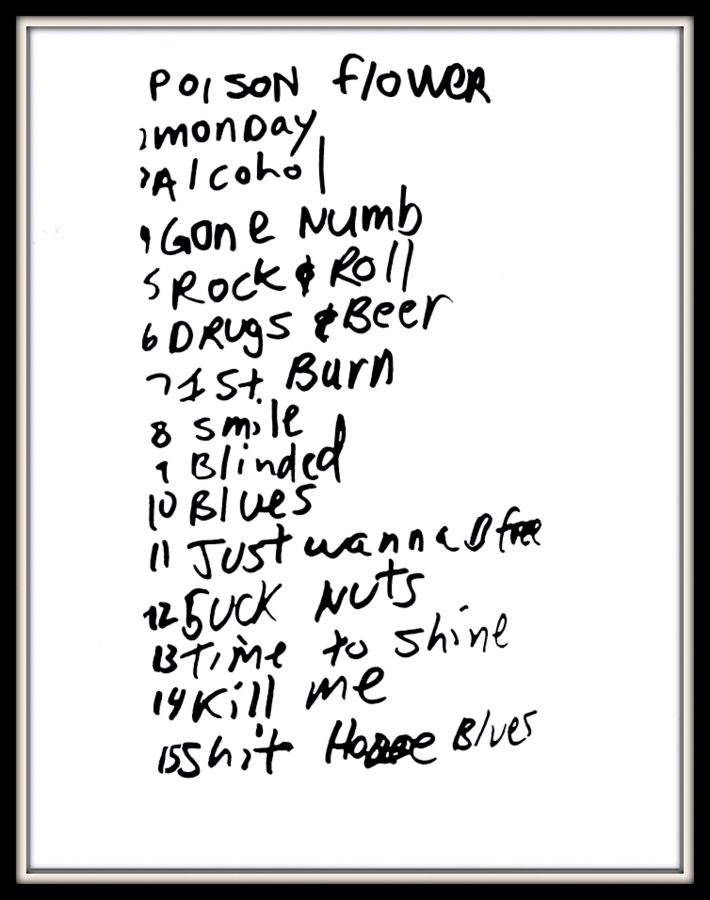 POISON flower
2 monday
3 Alcohol
4 Gone Numb
5 Rock & Roll
6 DRUgS & Beer
7 1st. Burn
8 smile
9 Blinded
10 Blues
11 Just wanna B free
12 SUCK NUTS
13 Time to shine
14 Kill me
15 Shit Blues